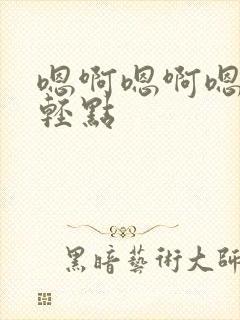 嗯啊嗯啊嗯
輕點
黑暗藝術大師